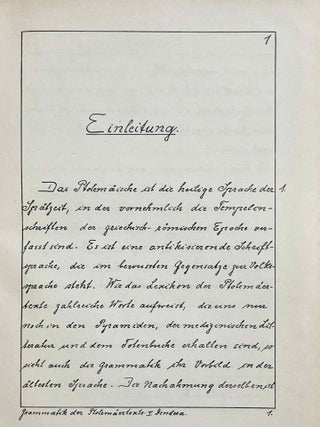 1
Einleitung.
Das Ptolemäische ist die heilige Sprache der 1.
Spätzeit, in der vornehmlich die Tempelin-
schriften der griechisch-römischen Epoche ver-
fasst sind. Es ist eine antikisierende Schrift-
sprache, die im bewussten Gegensatze zur Volks-
sprache steht. Wie das Lexikon der Ptolemäer-
texte zahlreiche Worte aufweist, die uns nur
noch in den Pyramiden, der medizinischen Lit-
teratur und dem Totenbuche erhalten sind, so
sieht auch die Grammatik ihr Vorbild in der
ältesten Sprache. Die Nachahmung derselben ist
Grammatik der Ptolemäertexte. I Dendera. 1.